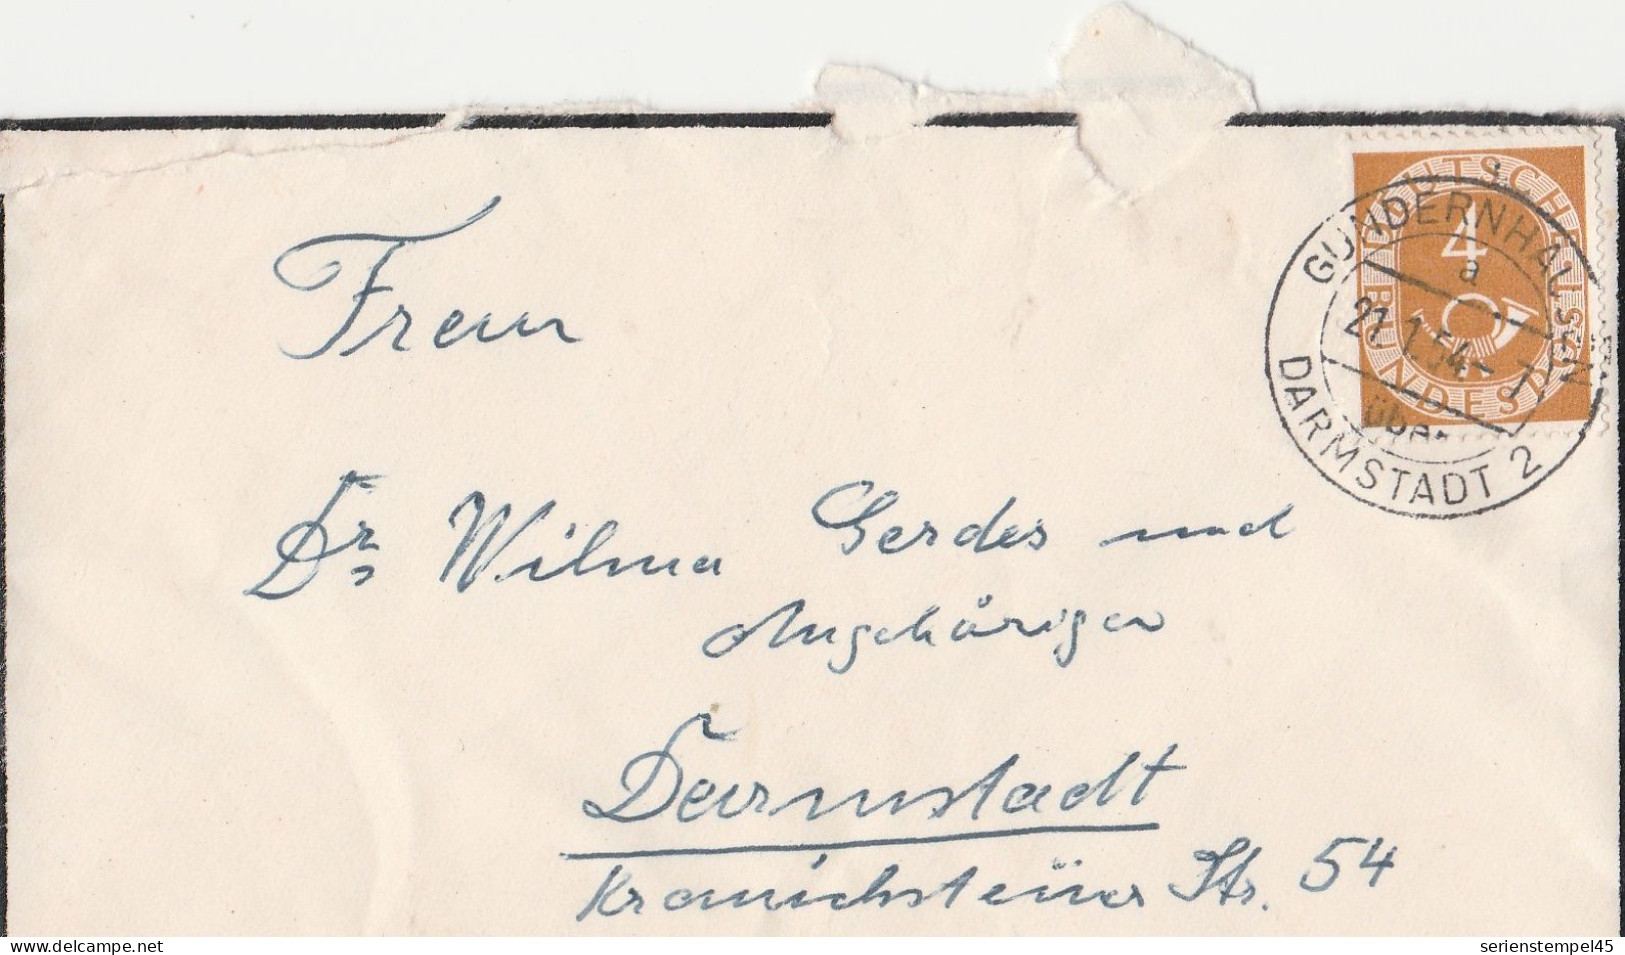 DEUTSCHE BUNDESPOST
4
GUNDERNHAUSEN
a
21.1.54 - 7
über
DARMSTADT 2
Frau
Dr. Wilma Gerdes und
Angehörigen
Darmstadt
Kranichsteiner Str. 54
serienstempel45